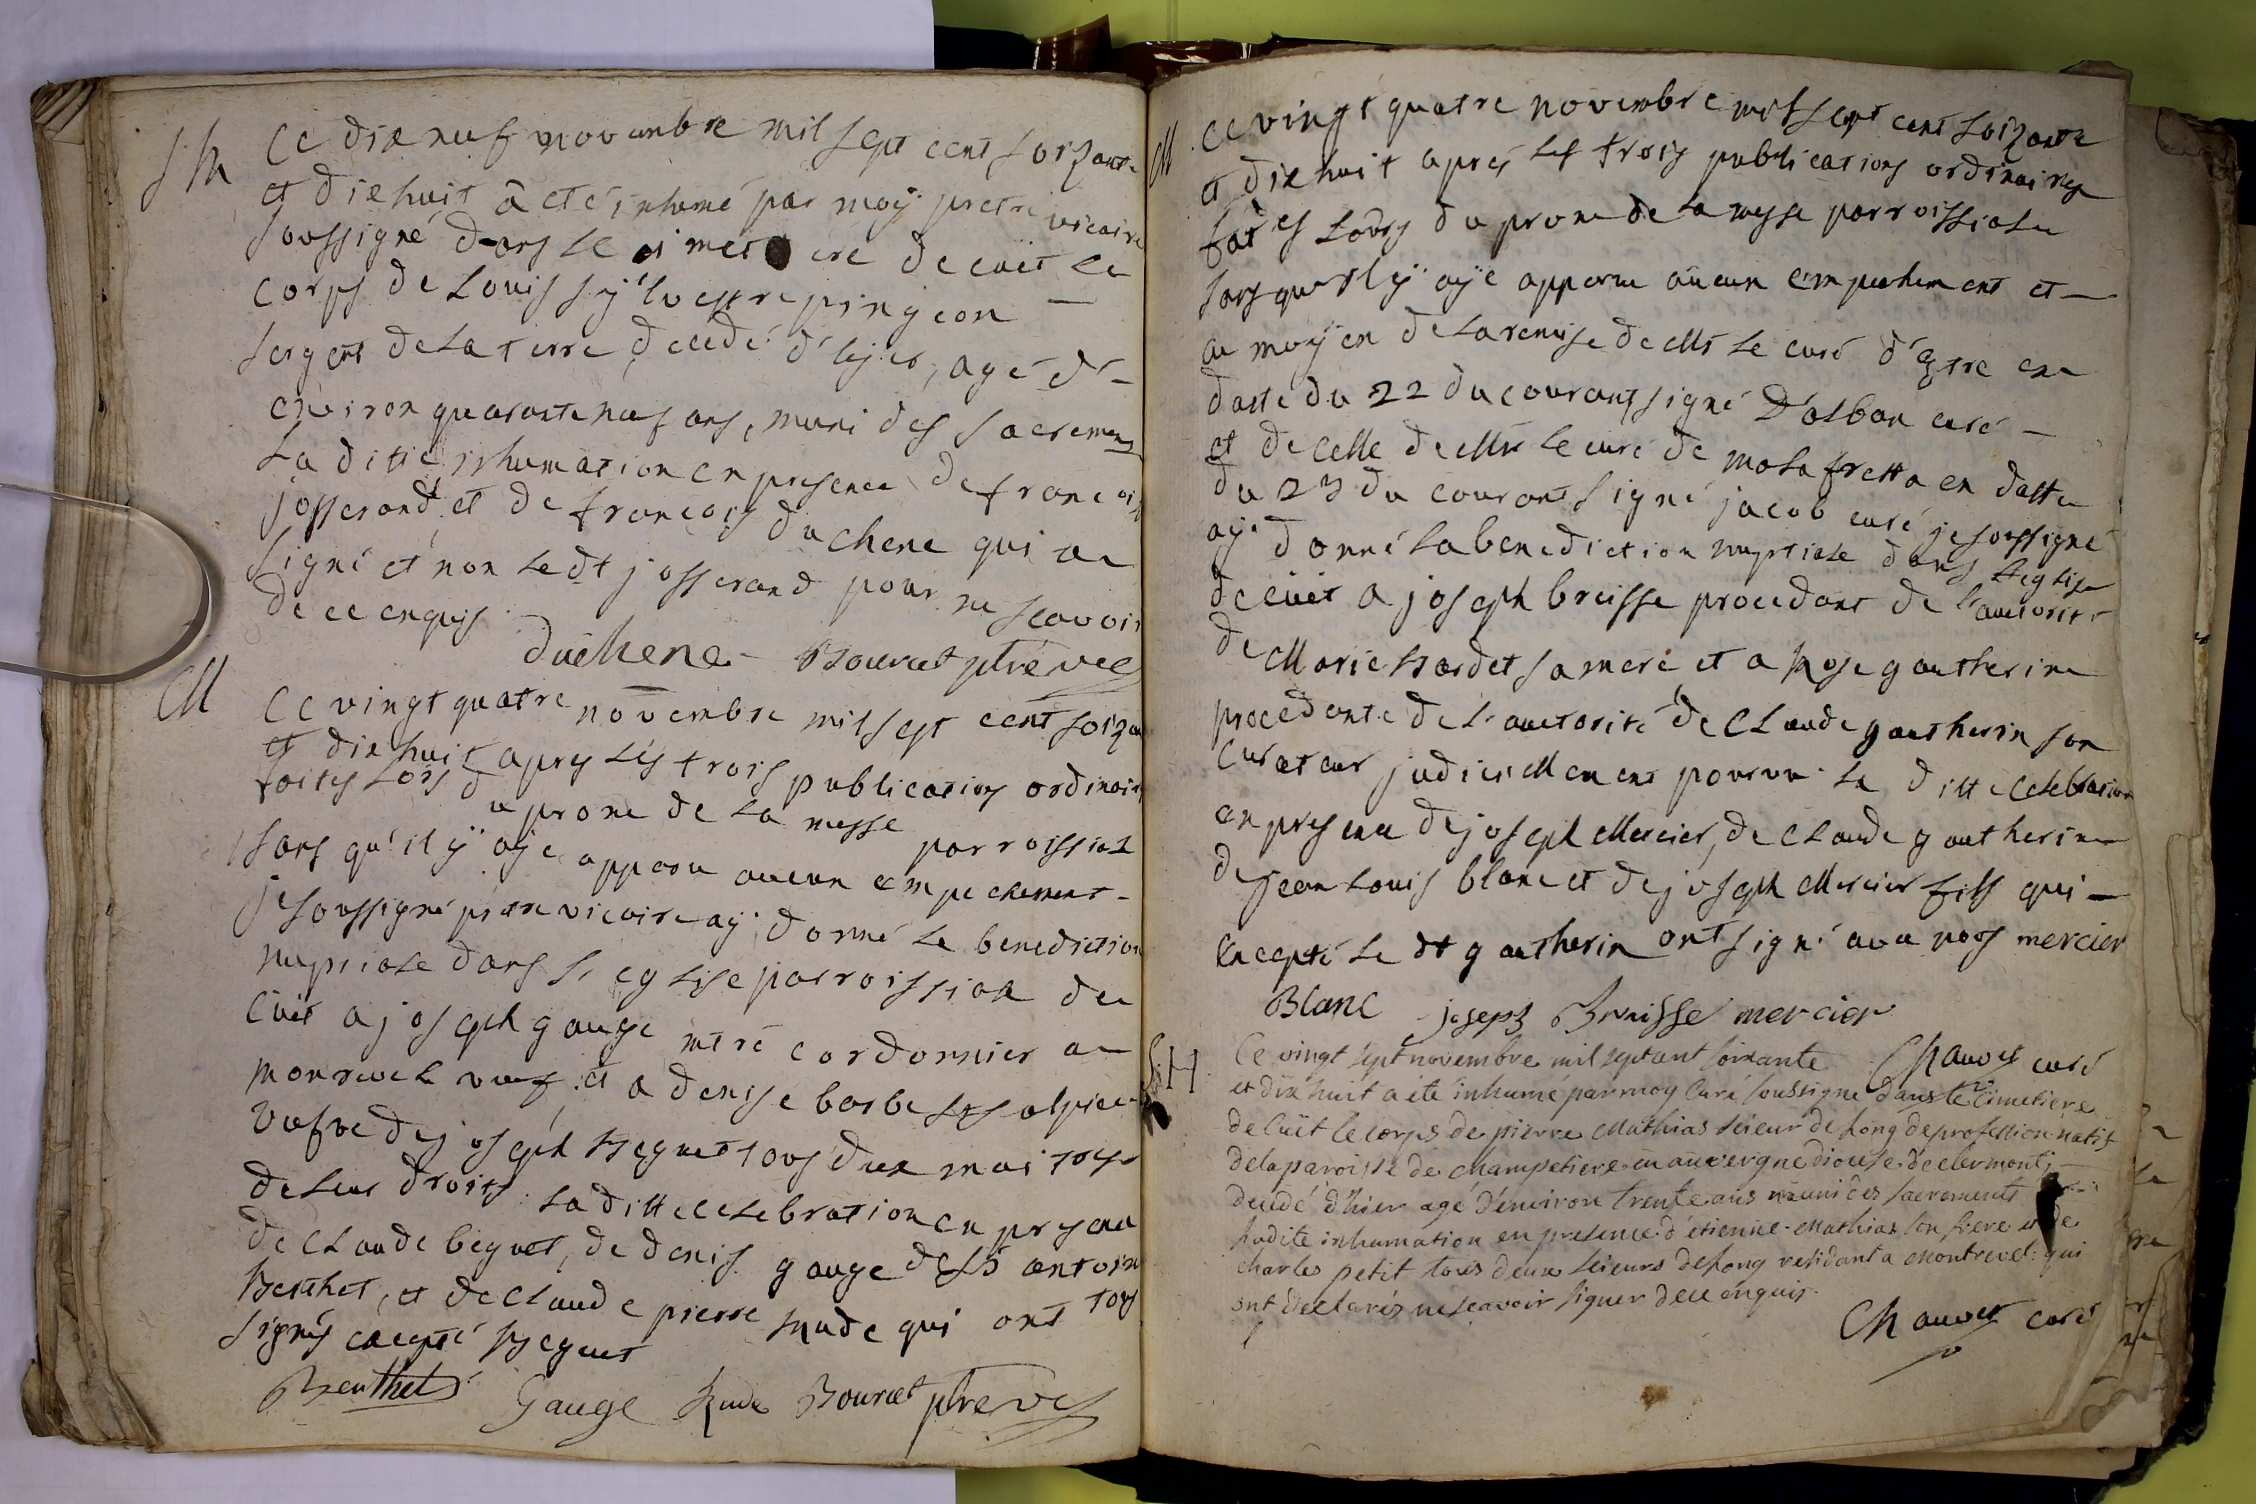 S.h Ce dix neuf novembre mil sept cent soixante
et dixhuit à eté inhumé par moy pretre vicaire
soussigné dans le cimetiere de cuet le
corps de Louis sylvestre pingeon
sergent de la terre decedé d'hyer, agé d'
environ quarante neuf ans, muni des sacremens
La ditte inhumation en presence de francois
josserand et de francois duchene qui a
signé et non le dt josserand pour ne scavoir
de ce enquis. duchene Bouvat ptre vic
M Ce vingt quatre novembre mil sept cent soixan
et dixhuit apres les trois publications ordinair
faites lors du prone de la messe parroissial
sans qu'il y aye apparu aucun empechement
je soussigné pretre vicaire ay donné la benediction
nuptiale dans l'eglise parroissiale de
Cuet a joseph gauge mtre cordonnier a
monrevel veuf et a denise barbe
vefve de joseph Beguet tous deux maitres
de leur droits. La ditte celebration en presence
de claude beguet, de denis gauge de antoin
Berthet, et de claude pierre Rude qui ont tous
signés excepté Beguet
Berthet Gauge Rude Bouvat ptre vic
M Ce vingt quatre novembre mil sept cent soixante
et dixhuit aprés les trois publications ordinaires
faites lors du prone de la messe parroissiale
sans qu'il y aye apparu aucun empechement et
au moyen de la remise de Mr le curé d'
datté du 22 du courant signé D'alban curé
et de celle de Mr le curé de malafretta en datte
du 23 du courant signé jacob curé je soussigné
ay donné la benediction nuptiale dans l'eglise
de cüet a joseph breisse procedant de l'autorité
de Marie sa mere et a Rose gautherin
procedante de l'autorité de Claude gautherin son
curateur judiciellement pourvu. La ditte celebration
en presence de joseph Mercier, de claude gautherin
de jean Louis blanc et de joseph Mercier fils qui
excepté le dt gautherin ont signé avec nous mercier
Blanc joseph Braisse mercier
Chauvet curé
S.H Ce vingt sept novembre mil sept cent soixante
et dix huit a eté inhumé par moy Curé soussigné dans le Cimetiere
de Cüet le corps de pierre Mathias scieur de long de profession natif
de la paroisse de champetiere en auvergne diocese de clermont
decedé d'hier agé d'environ trente ans muni des sacrements
Ladite inhumation en presence d'etienne Mathias son frere et de
charles petit tous deux scieurs de long residant a Montrevel qui
ont declarés ne scavoir signer de ce enquis.
Chauvet curé